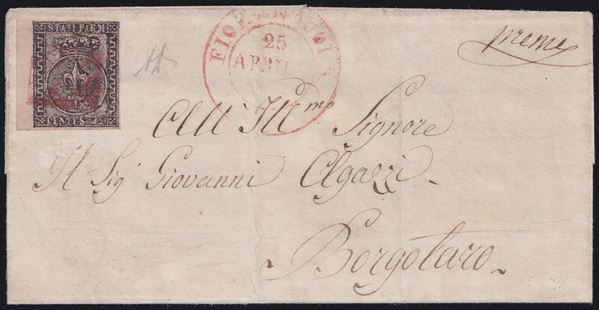 STATI PARM.
CENTES.
FIORENZUOLA
25
APRILE
preme
All' Ill.mo Signore
Il Sig.r Giovanni Algazzi
Borgotaro.